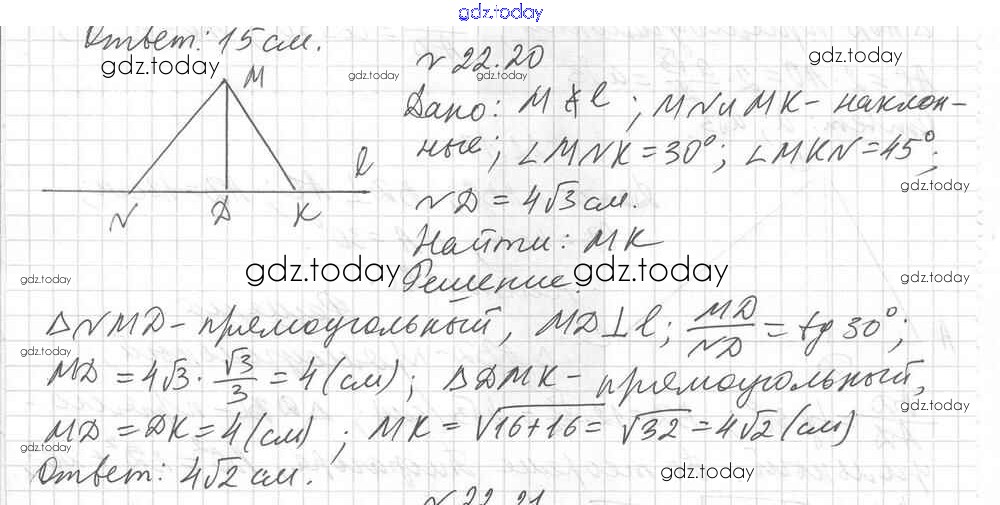 gdz.today
Ответ: 15 см.
gdz.today
N 22.20
gdz.today
gdz.today
M
Дано: M ∉ l ; MN и MK - наклон-
ные; ∠MNK = 30°; ∠MKN = 45°;
l
gdz.today
N D K
ND = 4√3 см.
Найти: MK
gdz.today
gdz.today
gdz.today
gdz.today
Решение:
△NMD - прямоугольный, MD ⊥ l; MD/ND = tg 30°;
gdz.today
MD = 4√3 · √3/3 = 4 (см); △DMK - прямоугольный,
gdz.today
MD = DK = 4 (см) ; MK = √16+16 = √32 = 4√2 (см)
gdz.today
Ответ: 4√2 см.
gdz.today
N 22.21